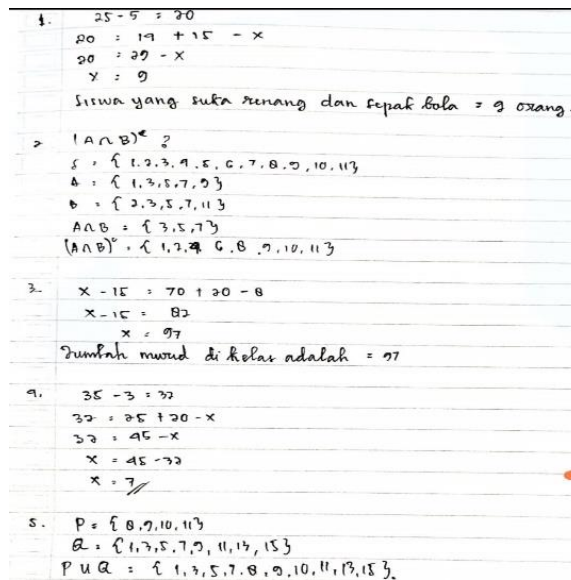 1. 25 - 5 = 20
20 = 14 + 15 - x
20 = 29 - x
x = 9
Siswa yang suka renang dan sepak bola = 9 orang.
2 (A ∩ B)ᶜ ?
S = { 1.2.3.4.5, 6, 7.8.9, 10, 11}
A = { 1,3,5,7,9}
B = { 2,3,5,7,11}
A∩B = { 3,5,7}
(A∩B)ᶜ = { 1,2,4 6.8.9,10,11}
3. x - 15 = 70 + 20 - 8
x - 15 = 82
x = 97
Jumlah murid di kelas adalah = 97
4. 35 - 3 = 32
32 = 25 + 20 - x
32 = 45 - x
x = 45 - 32
x = 7
5. P = {8.9.10.11}
Q = {1,3,5,7,9, 11, 13, 15}
P ∪ Q = { 1,3,5,7.8,9,10,11,13,15}.